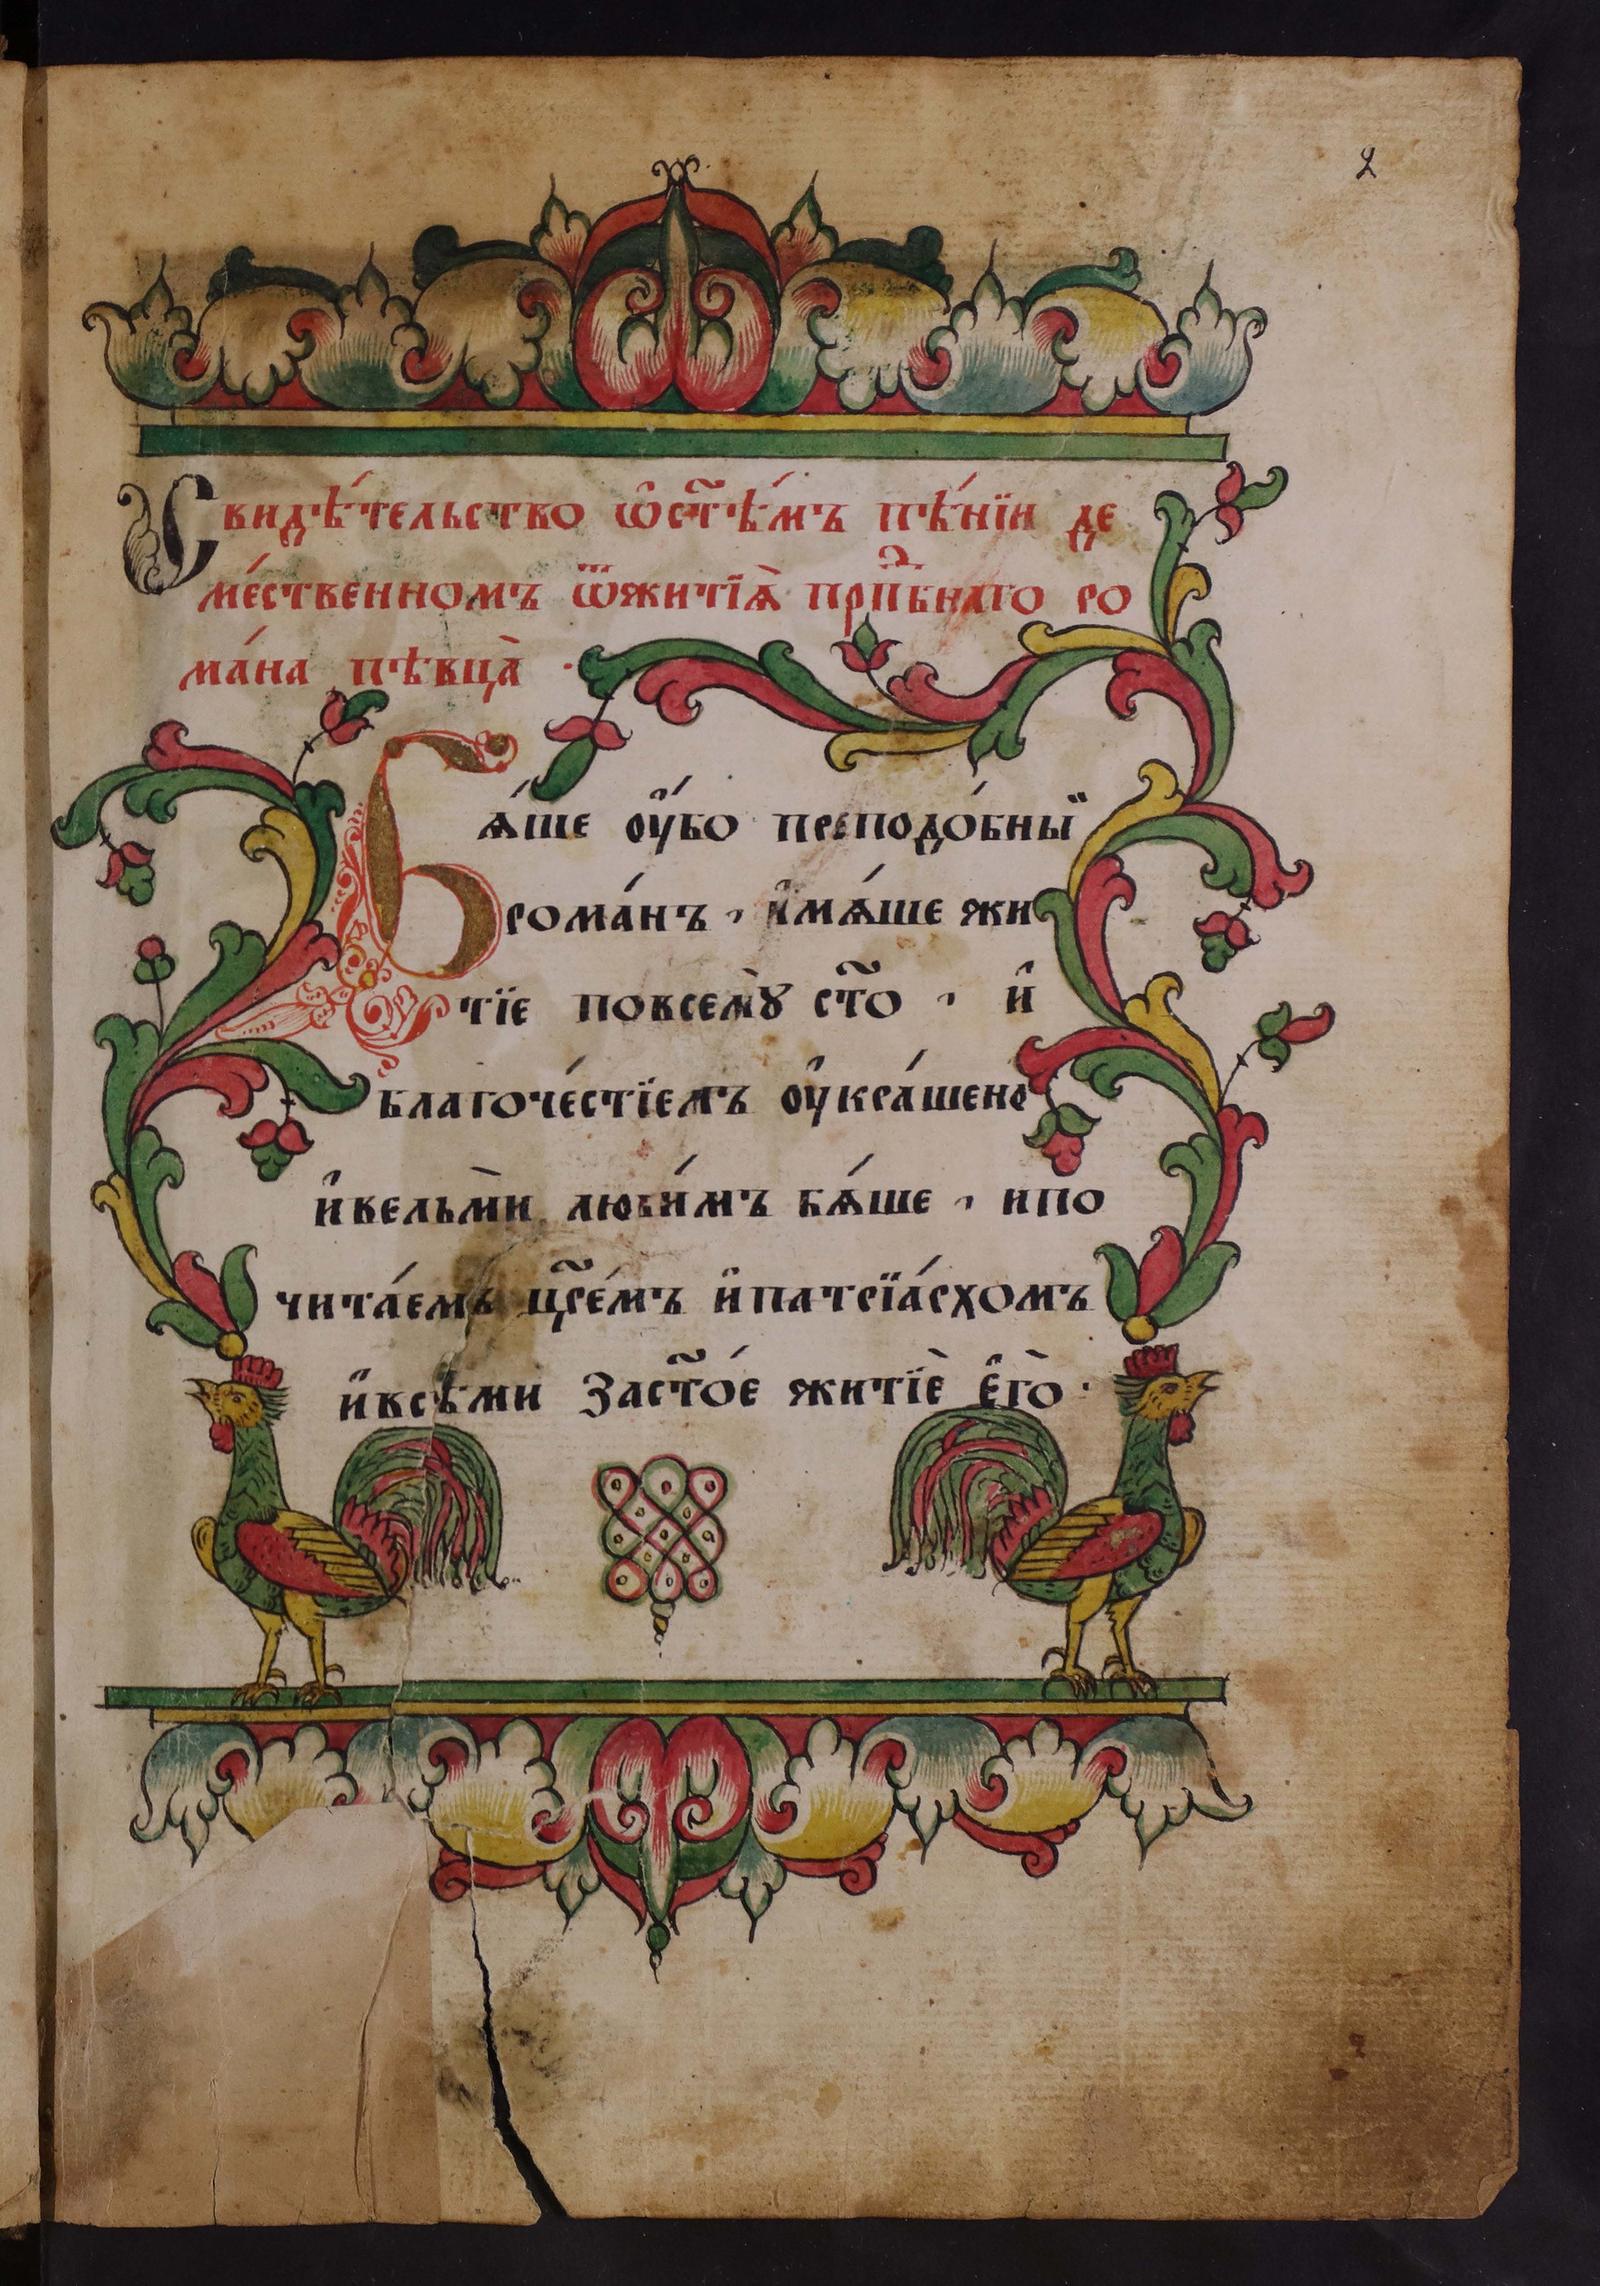 2
Свидѣ́тельство ѡ҆ст҃ѣ́мъ пѣ́нїи де
ме́ственномъ ѿжитїѧ̀ прпⷣбнаго ро
ма́на пѣвца̀ ·
Бѧ́ше ᲂу҆́бо преподо́бный
рома́нъ , и҆мѧ́ше жи
тїе повсемꙋ̀ ст҃о , и҆
благоче́стїемъ ᲂу҆кра́шено
и҆вельмѝ люби́мъ бѧ́ше , ипо
чита́емъ цр҃е́мъ и҆патрїа́рхомъ
и҆всѣми заст҃о́е житїѐ є҆го̀ ·